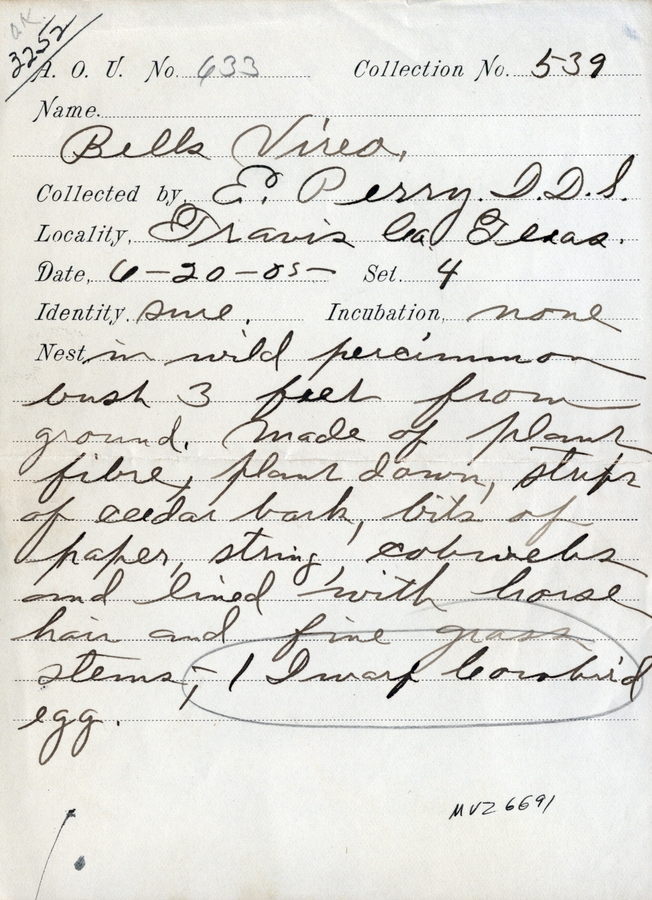 OK
3252
A. O. U. No. 633 Collection No. 539
Name.
Bells Vireo.
Collected by, E. Perry. D.D.S.
Locality, Travis Co. Texas.
Date, 6-20-05- Set. 4
Identity, sure. Incubation, none
Nest, in wild percimmon
bush 3 feet from
ground. Made of plant
fibre, plant down, strips
of ceedar bark, bits of
paper, string, cobwebs
and lined with horse
hair and fine grass
stems; - 1 Dwarf Cowbird
egg.
MVZ 6691